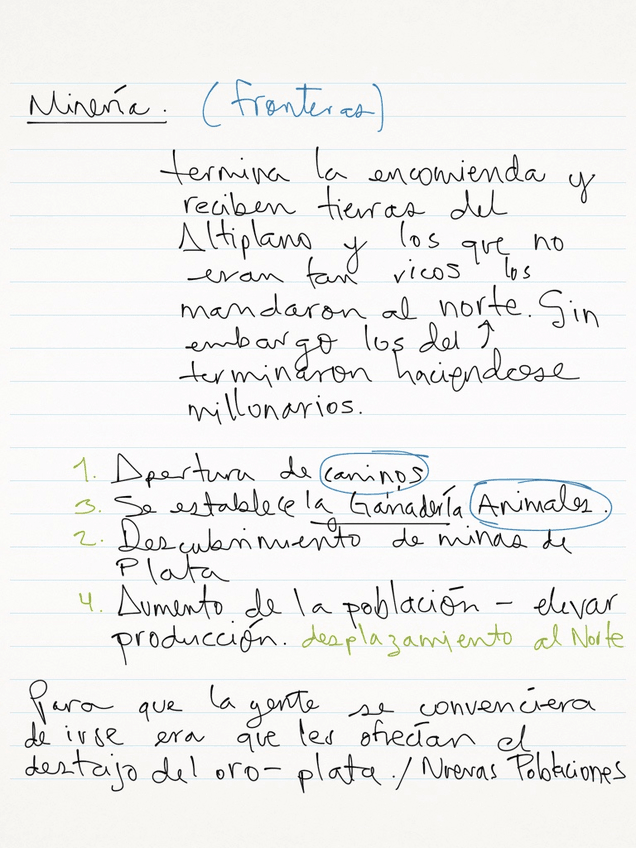 Minería. (Fronteras)
termina la encomienda y
reciben tierras del
Altiplano y los que no
eran tan ricos los
mandaron al norte. Sin
embargo los del ↑
terminaron haciendose
millonarios.
1. Apertura de caminos
3. Se establece la Ganadería Animales.
2. Descubrimiento de minas de
Plata
4. Aumento de la población – elevar
producción. desplazamiento al Norte
Para que la gente se convenciera
de irse era que les ofrecían el
destajo del oro – plata. / Nuevas Poblaciones